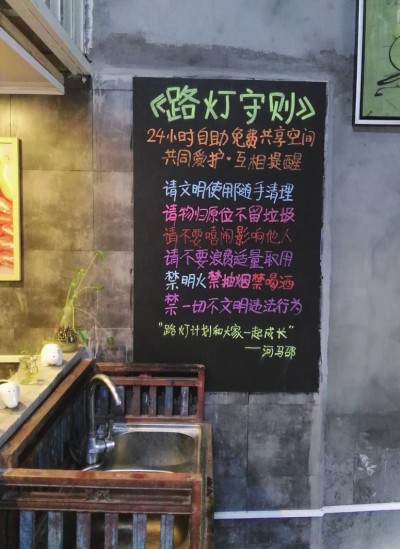 《路灯守则》
24小时自助免费共享空间
共同爱护·互相提醒
请文明使用随手清理
请物归原位不留垃圾
请不要嘻闹影响他人
请不要浪费适量取用
禁明火禁抽烟禁喝酒
禁一切不文明违法行为
"路灯计划和大家一起成长"
——河马邵